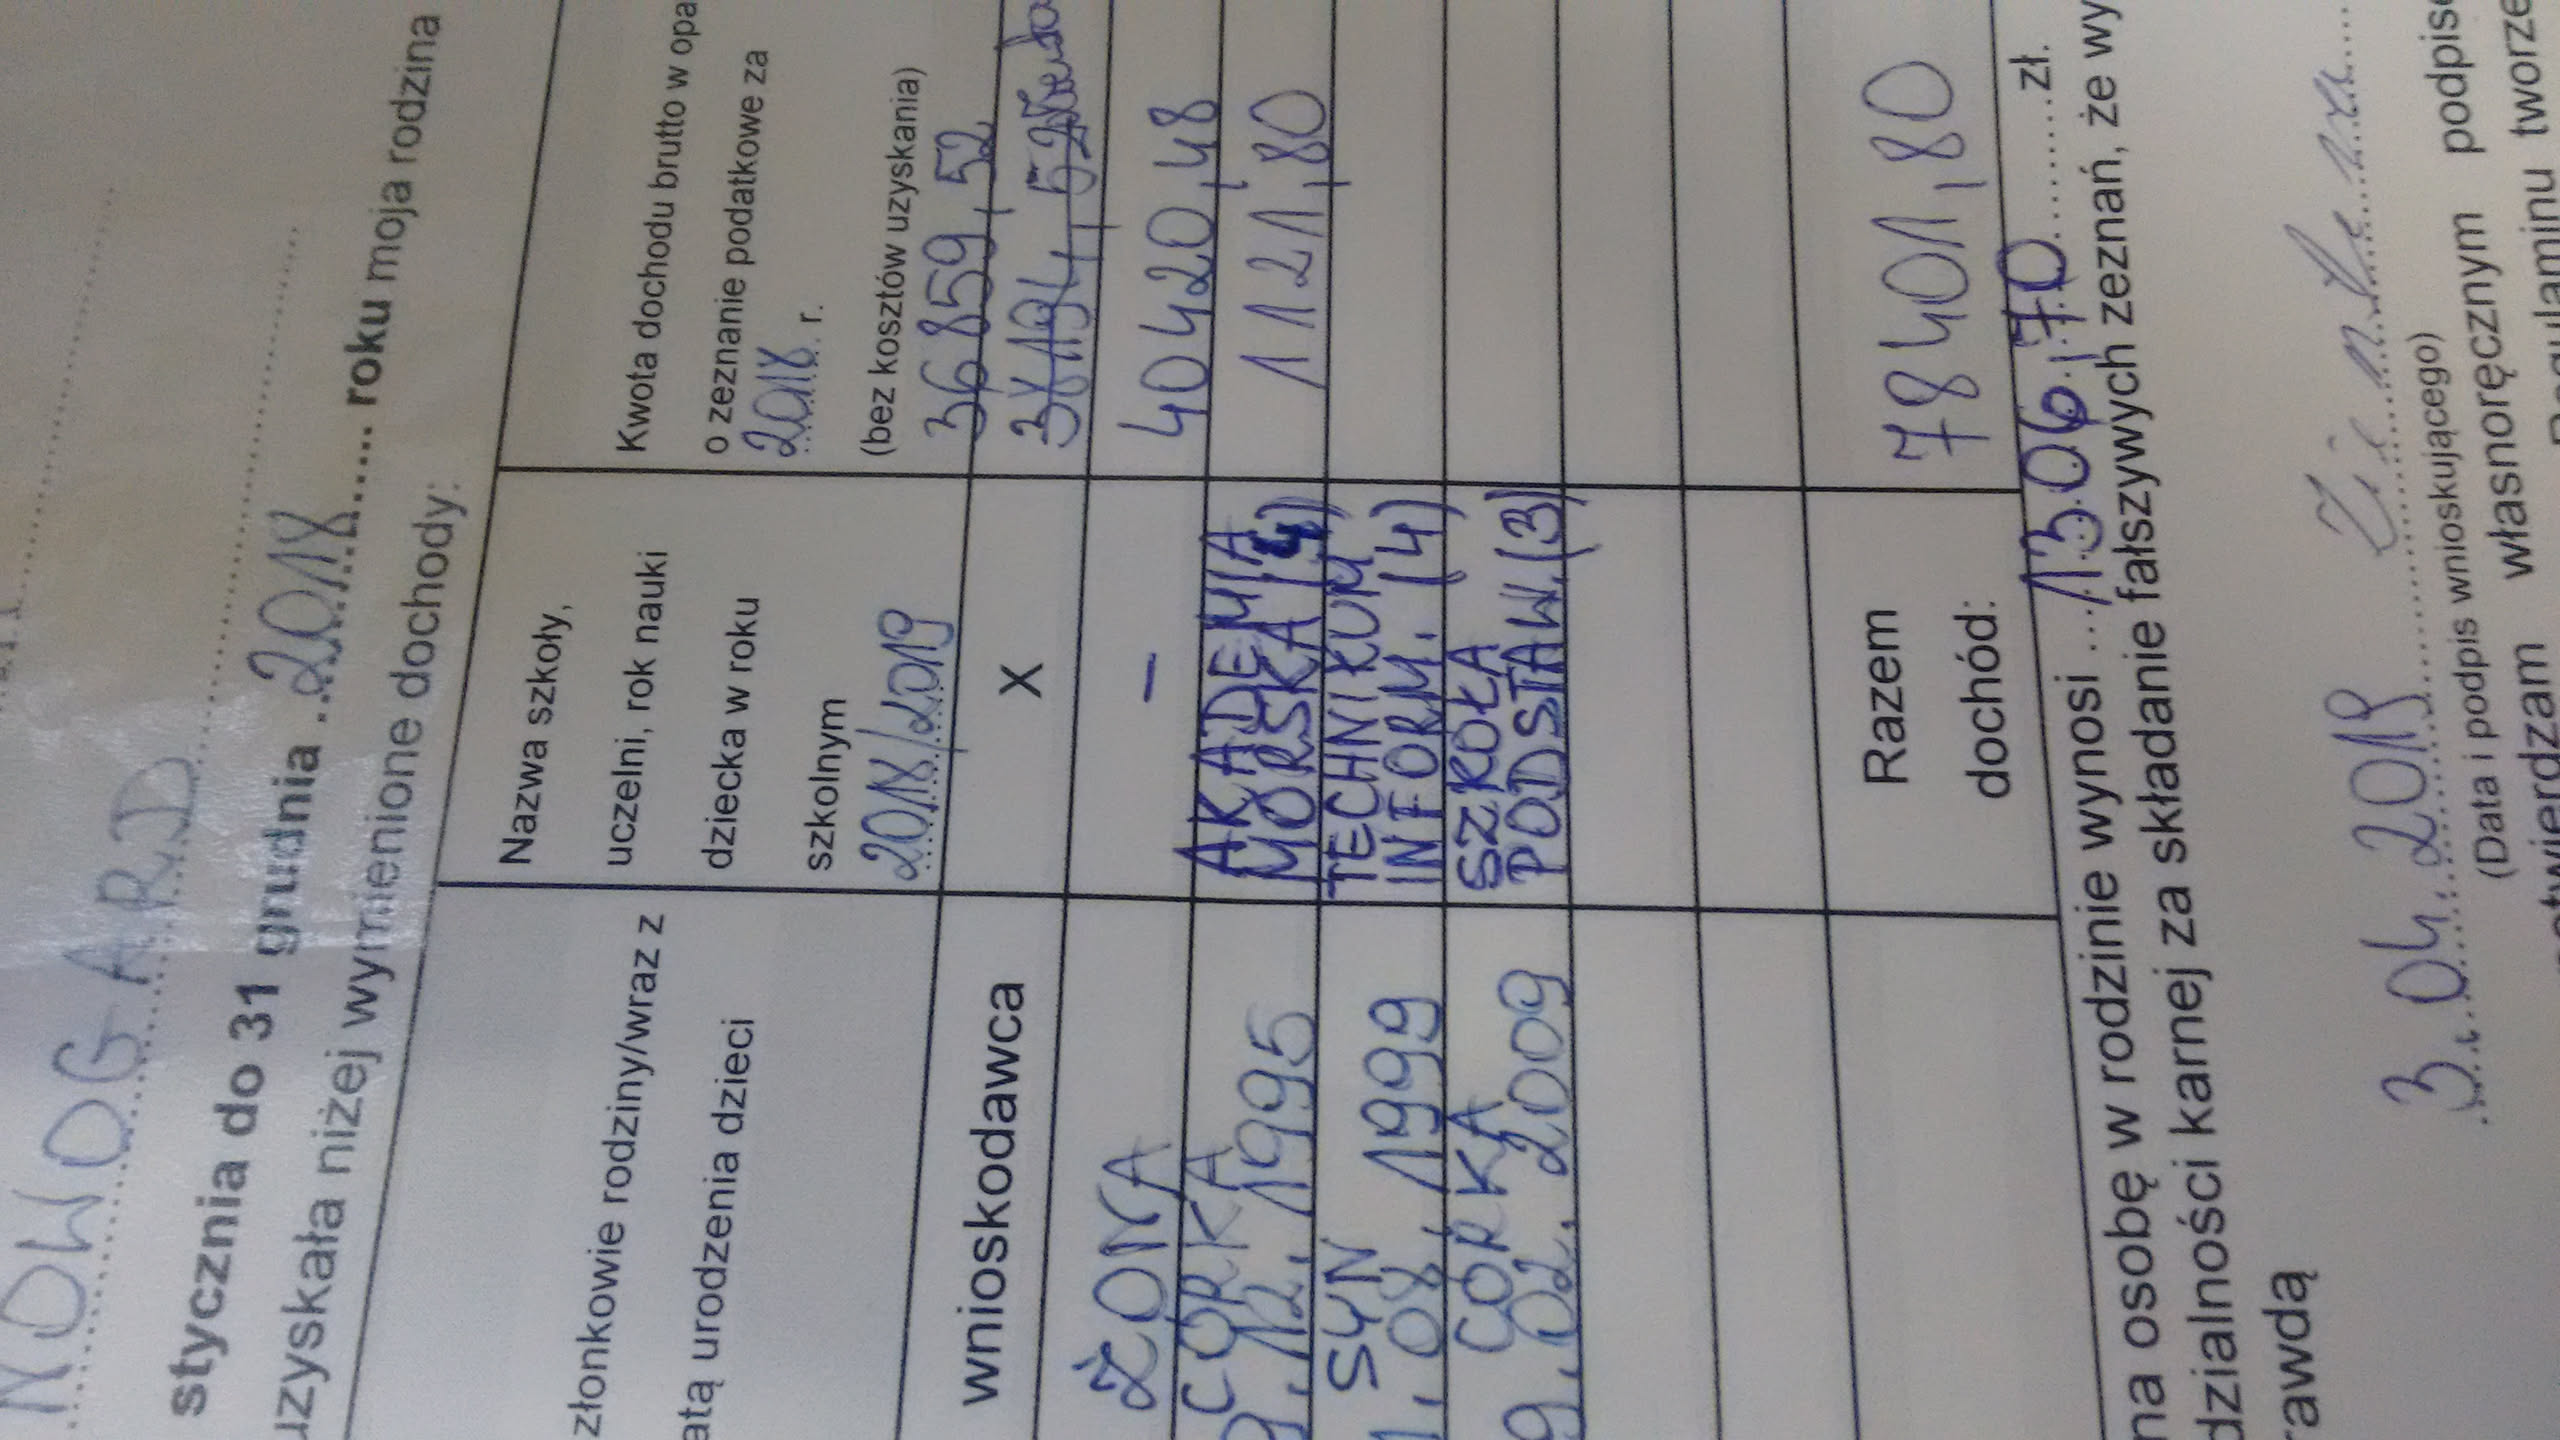 NOWOGARD
stycznia do 31 grudnia 2018 roku moja rodzina
uzyskała niżej wymienione dochody:
złonkowie rodziny/wraz z
atą urodzenia dzieci
Nazwa szkoły,
uczelni, rok nauki
dziecka w roku
szkolnym
2018/2019
Kwota dochodu brutto w opa
o zeznanie podatkowe za
2018 r.
(bez kosztów uzyskania)
36859,52
wnioskodawca X
ŻONA – 40420,48
CÓRKA AKADEMIA 1121,80
9.12.1995 MORSKA (4)
SYN TECHNIKUM
1.08.1999 INFORM. (4)
CÓRKA SZKOŁA
9.02.2009 PODSTAW. (3)
Razem
dochód: 78401,80
na osobę w rodzinie wynosi 13.06,70 zł.
dzialności karnej za składanie fałszywych zeznań, że wy
rawdą
3.04.2019
(Data i podpis wnioskującego)
otwierdzam własnoręcznym podpise
Regulaminu tworze